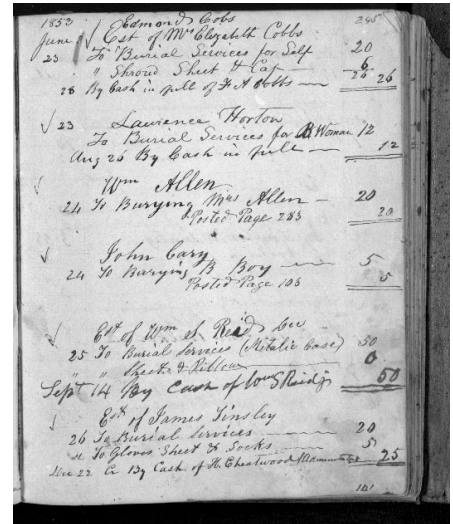 1852 Edmond Cobs 285
June Est of Mrs Elizabeth Cobbs
23 To Burial Services for Self 20
" Shroud Sheet & Cap — 6
26 26
28 By Cash in full of A Cobbs —
23 Lawrence Horton
To Burial Services for B Woman 12
Aug 26 By Cash in full — 12
Wm Allen
24 To Burying Mrs Allen — 20
Posted Page 283 20
John Cary
24 To Burying B Boy — 5
Posted Page 103 5
Est of Wm S Reid Dec
25 To Burial Services (Metalic Case) 50
" " Sheet & Pillow 0
Sept 14 By Cash of Wm S Reid Jr 50
Est of James Tinsley
26 To Burial Services — 20
" To Gloves Sheet & Socks — 5
Dec 22 Cr By Cash of H. Cheatwood 25
141